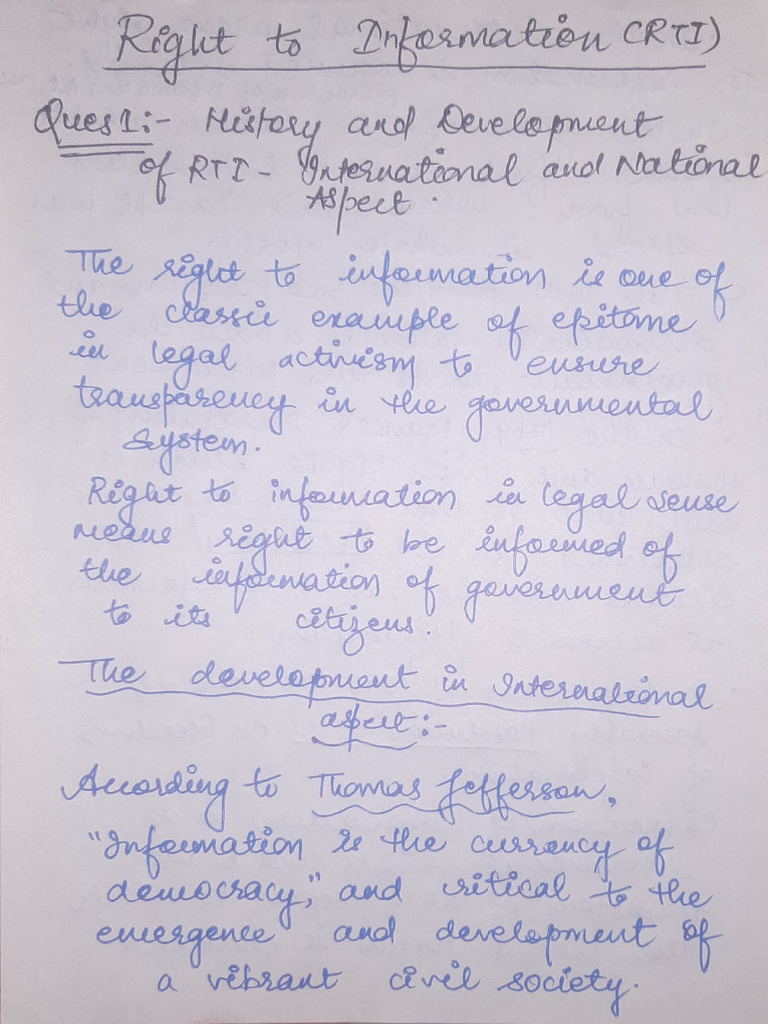 Right to Information (RTI)
Ques1:- History and Development
of RTI - International and National
Aspect.
The right to information is one of
the classic example of epitome
in legal activism to ensure
transparency in the governmental
system.
Right to information in legal sense
means right to be informed of
the information of government
to its citizens.
The development in International
aspect:-
According to Thomas Jefferson,
"Information is the currency of
democracy," and critical to the
emergence and development of
a vibrant civil society.